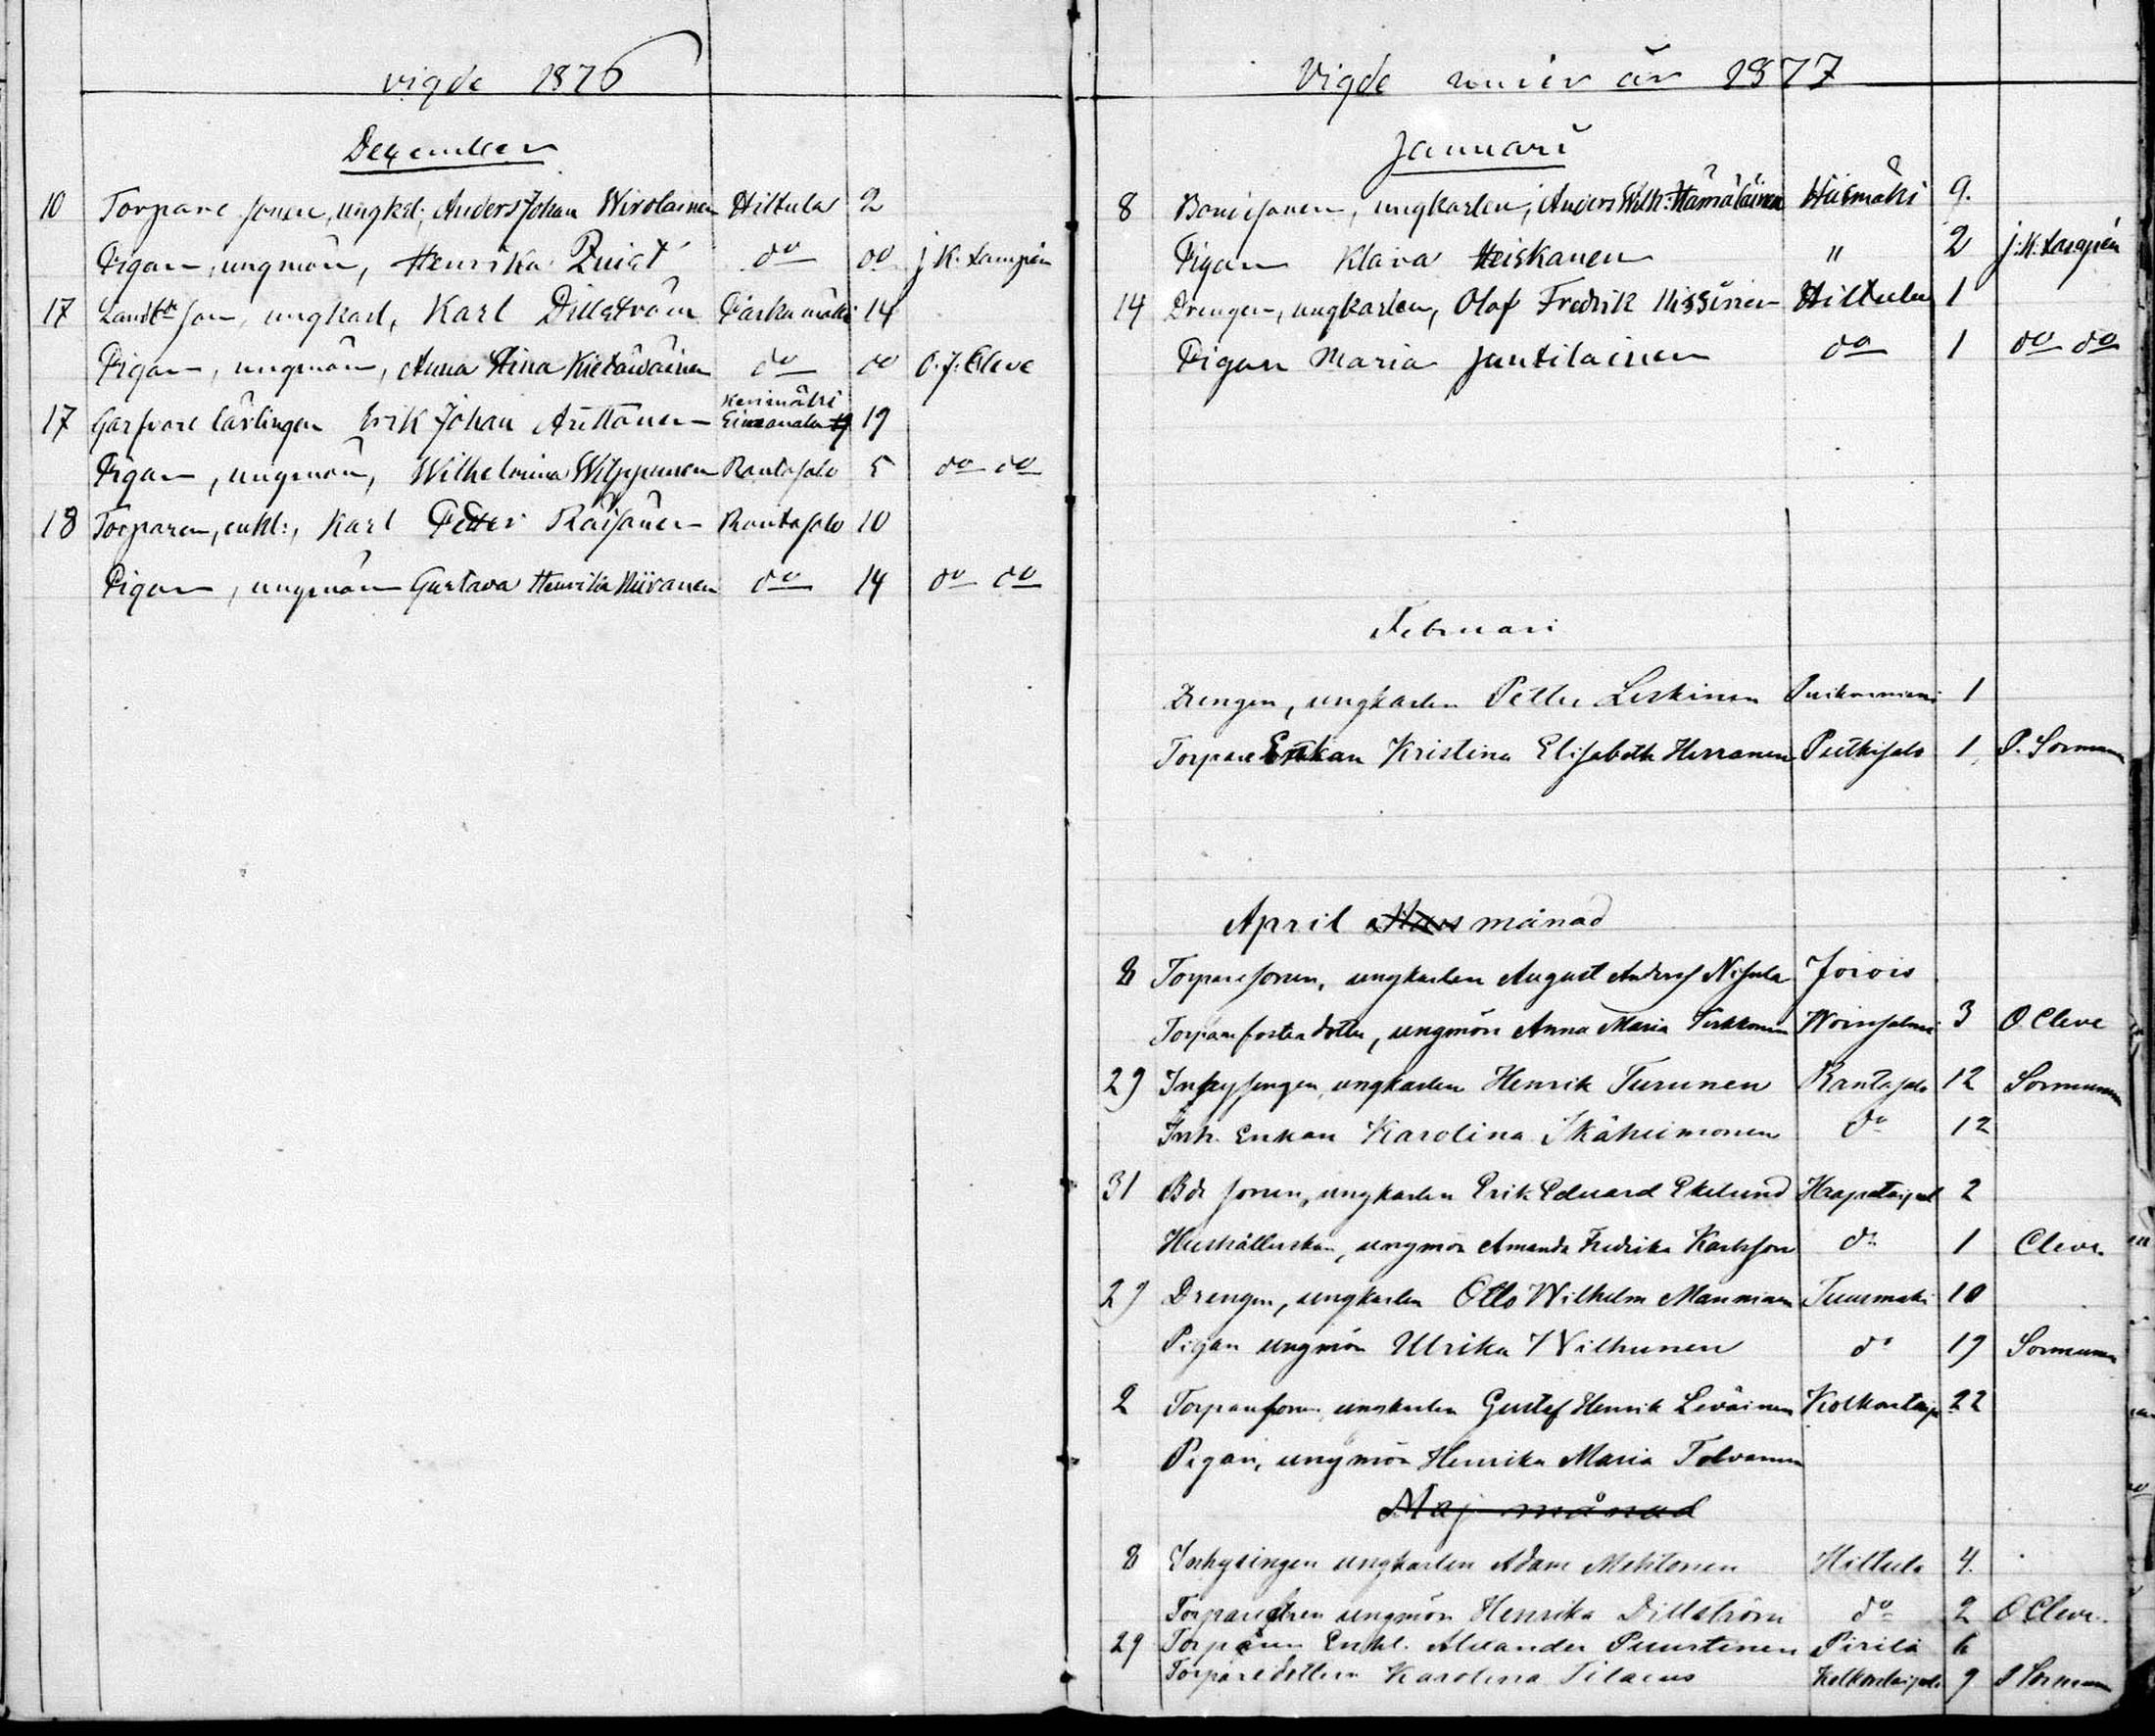 vigde 1876
December
10 Torpare sonen, ungkel; Anders Johan Wirolainen Hiltula 2
Pigan, ungmön, Henrika Quist do do J K. Lampén
17 Landbk son, ungkarl, Karl Dillström Pärkämäki 14
Pigan, ungmön, Anna Stina Kietäwäinen do do O. J. Cleve
Kerimäki
17 Garfvare lärlingen Erik Johan Arttonen 19
Pigan, ungmön, Wilhelmina Wilppunen Rantasalo 5 do do
18 Torparen, enkl:, Karl Petter Räisänen Rantasalo 10
Pigan, ungmön Gustava Henrika Niiranen do 14 do do
Vigde under år 1877
Januari
8 Bondesonen, ungkarlen, Anders Wilh: Hämäläinen Hiismäki 9.
Pigan Klara Heiskanen " 2 J. K. Lampén
14 Drengen, ungkarlen, Olof Fredrik Nissinen Hiltula 1
Pigan Maria Jantilainen do 1 do do
Februari
Drengen, ungkarlen Petter Leskinen 1
Torpare Enkan Kristina Elisabeth Herranen Putkisalo 1, P. Sormunen
April Mars månad
8 Torparesonen, ungkarlen August Anders Nisula Jorois
Torpare fosterdotter, ungmön Anna Maria 3 O Cleve
29 Inhysingen, ungkarlen Henrik Turunen Rantasalo 12 Sormunen
Inh. Enkan Karolina Ikäheimonen do 12
31 Bde sonen, ungkarlen Erik Eduard Ekelund Haapataipal 2
Hushållerskan, ungmön Amanda Fredrika Karlsson do 1 Cleve
29 Drengen, ungkarlen Otto Wilhelm Manninen Tuusmäki 10
Pigan ungmön Ulrika Wilhunen do 19 Sormunen
2 Torparesonen, ungkarlen Gustaf Henrik Leväinen Kolkontaip 22
Pigan, ungmön Henrika Maria Tolvanen
Maj månad
8 Inhysingen ungkarlen Adam Mehtonen Hiltula 4.
ungmön Henrika Dillström do 2 O Cleve.
29 Torparen Enkl. Alexander Puurtinen Pirilä 6
Torparedottern Karolina Tilaeus Kolkontaipale 9 P Sormunen